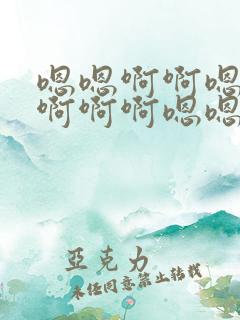 嗯嗯啊啊嗯
啊啊啊嗯嗯
亚克力
未经同意禁止转载